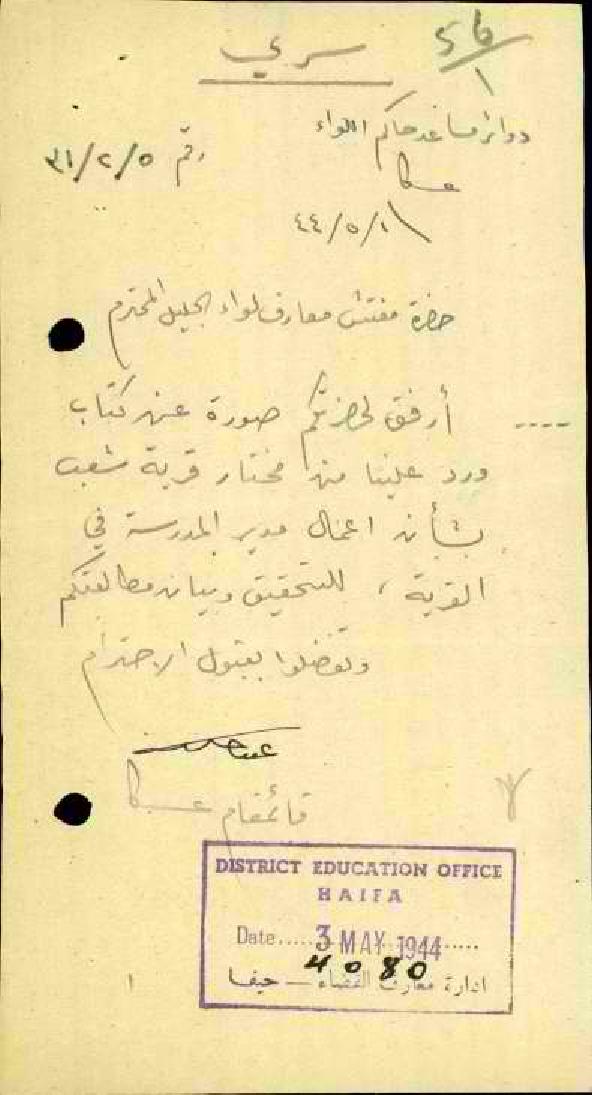 سري
دوائر مساعد حاكم اللواء
عكا
رقم ٣١/٢/٥
٤٤/٥/١
حضرة مفتش معارف لواء الجليل المحترم
أرفق لحضرتكم صورة عن كتاب
ورد علينا من مختار قرية شعب
بشأن اعمال مدير المدرسة في
القرية ، للتحقيق وبيان مطالعتكم
وتفضلوا بقبول الاحترام
قائمقام عكا
DISTRICT EDUCATION OFFICE
HAIFA
Date..... 3 MAY 1944.....
4080
ادارة معارف القضاء — حيفا